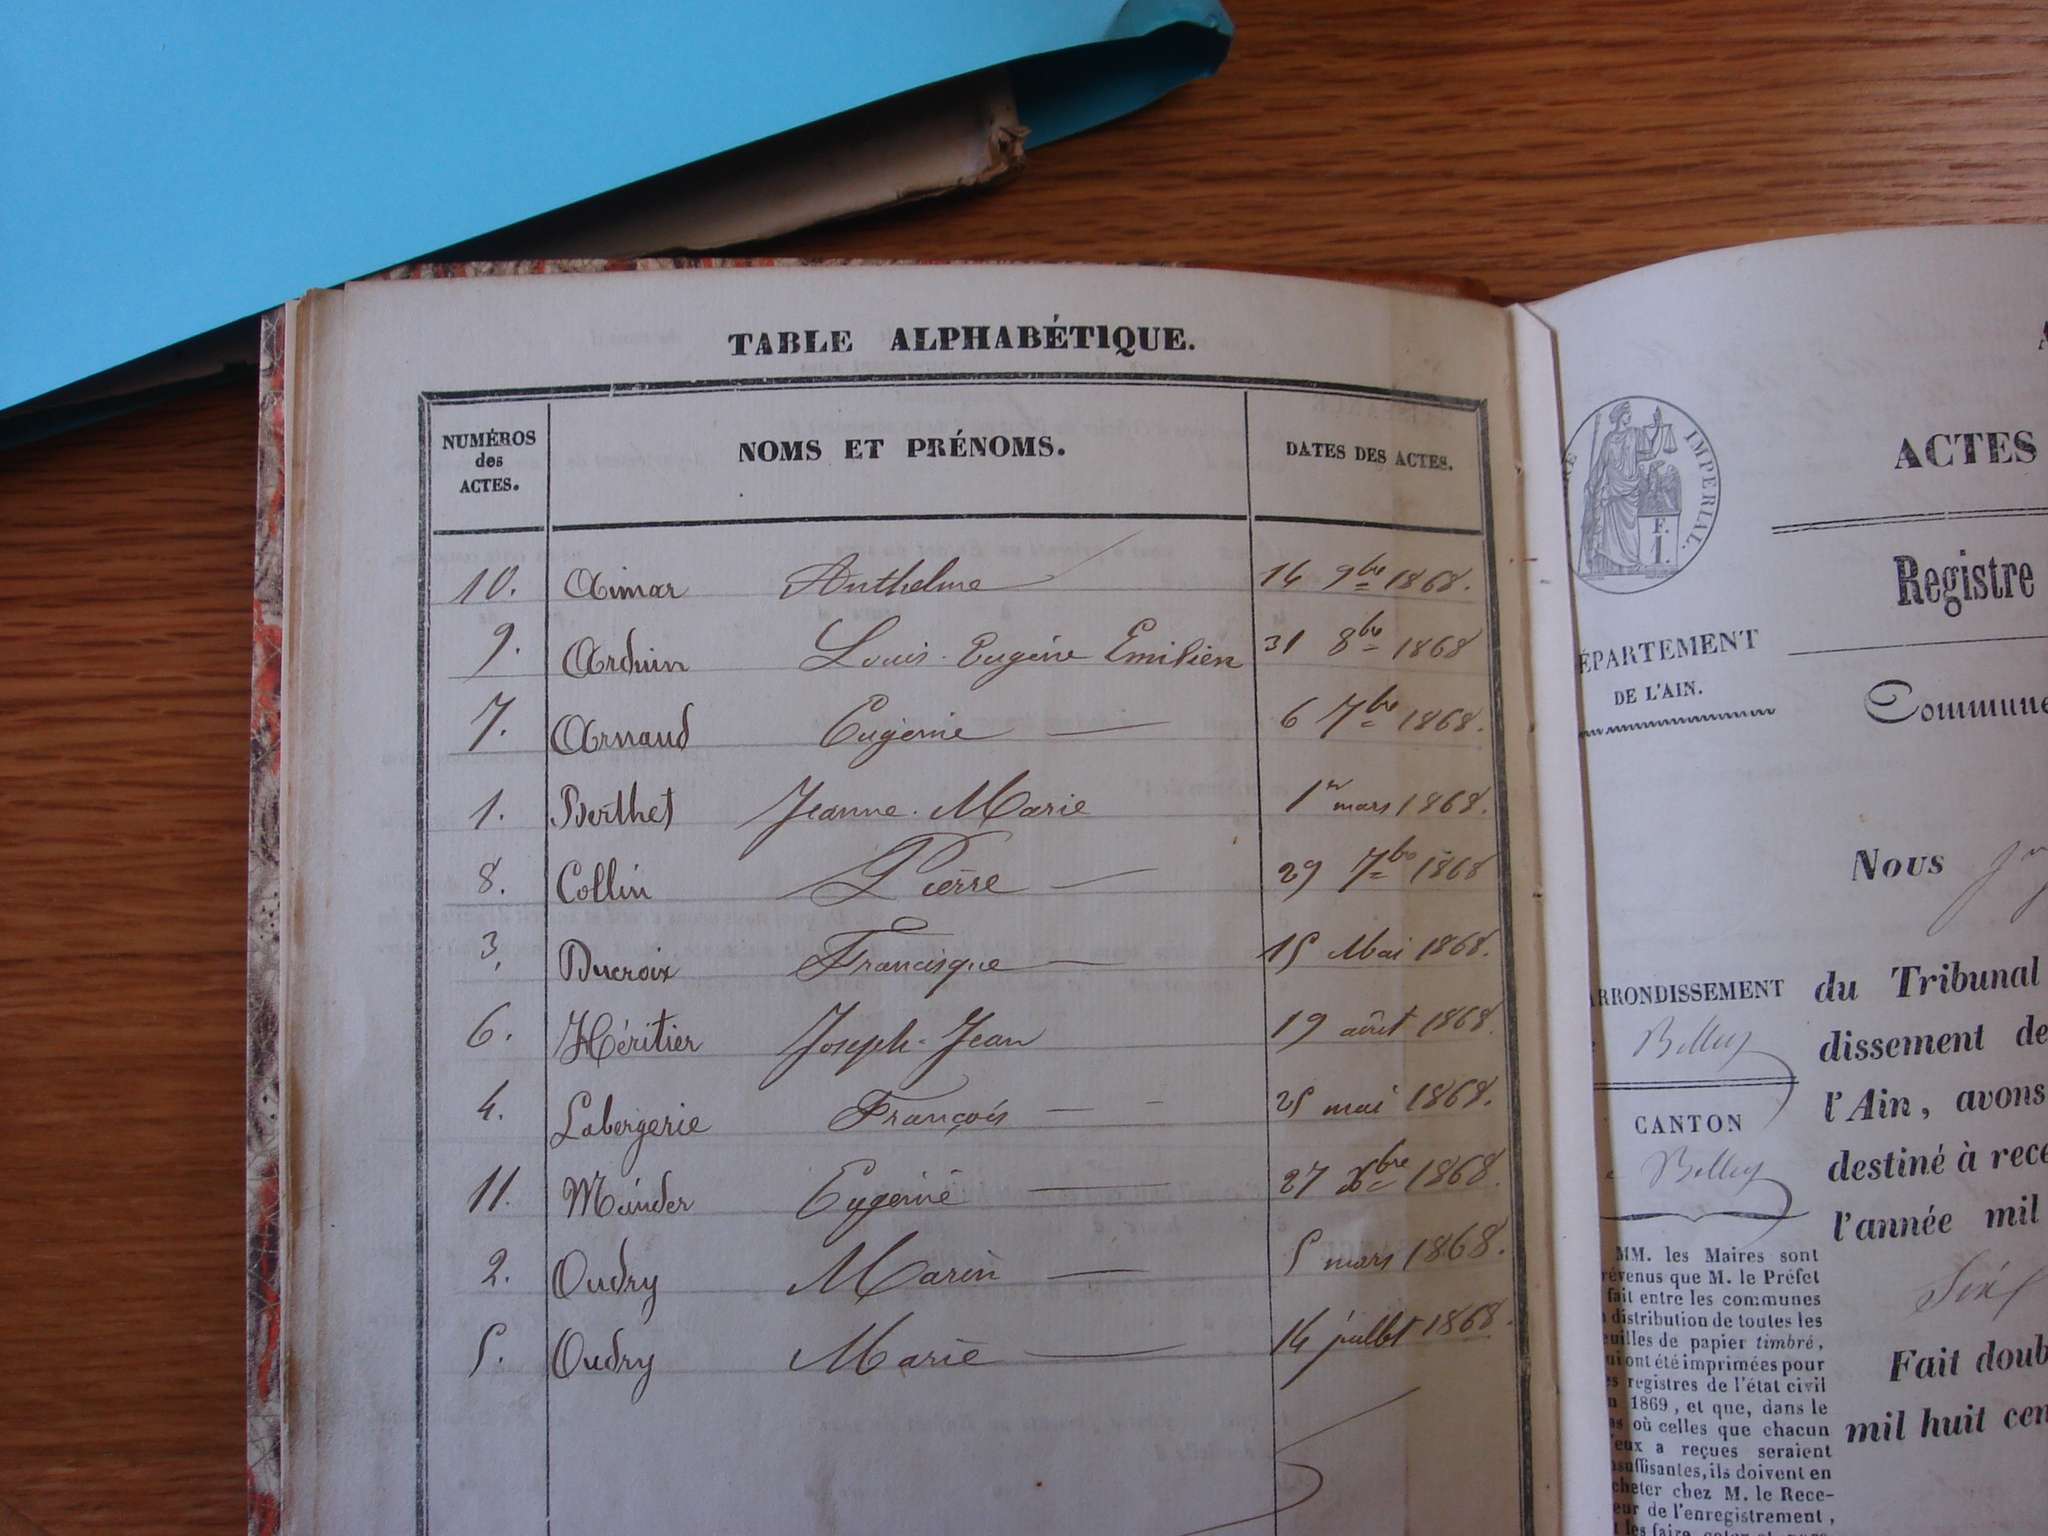 TABLE ALPHABÉTIQUE.
NUMÉROS
des
ACTES.
NOMS ET PRÉNOMS.
DATES DES ACTES.
10. Aimar Anthelme 14 9bre 1868.
9. Arduin Louis-Eugène Emilien 31 8bre 1868
7. Arnaud Eugénie 6 7bre 1868.
1. Berthet Jeanne-Marie 1er mars 1868.
8. Collin Pierre 29 7bre 1868
3. Ducroix Francisque 15 Mai 1868.
6. Héritier Joseph-Jean 19 août 1868.
4. Labergerie François 25 mai 1868.
11. Munder Eugénie 27 Xbre 1868.
2. Oudry Marin 5 mars 1868.
5. Oudry Marie 14 juillet 1868.
IMPERIAL.
F.
1.
ÉPARTEMENT
DE L'AIN.
ARRONDISSEMENT
Belley
CANTON
Belley
MM. les Maires sont
révenus que M. le Préfet
fait entre les communes
distribution de toutes les
euilles de papier timbré,
ui ont été imprimées pour
es registres de l'état civil
n 1869, et que, dans le
as où celles que chacun
d'eux a reçues seraient
nsuffisantes, ils doivent en
cheter chez M. le Rece-
eur de l'enregistrement,
ACTES
Registre
Commune
Nous
du Tribunal
dissement de
l'Ain, avons
destiné à rece
l'année mil
Fait doub
mil huit cen